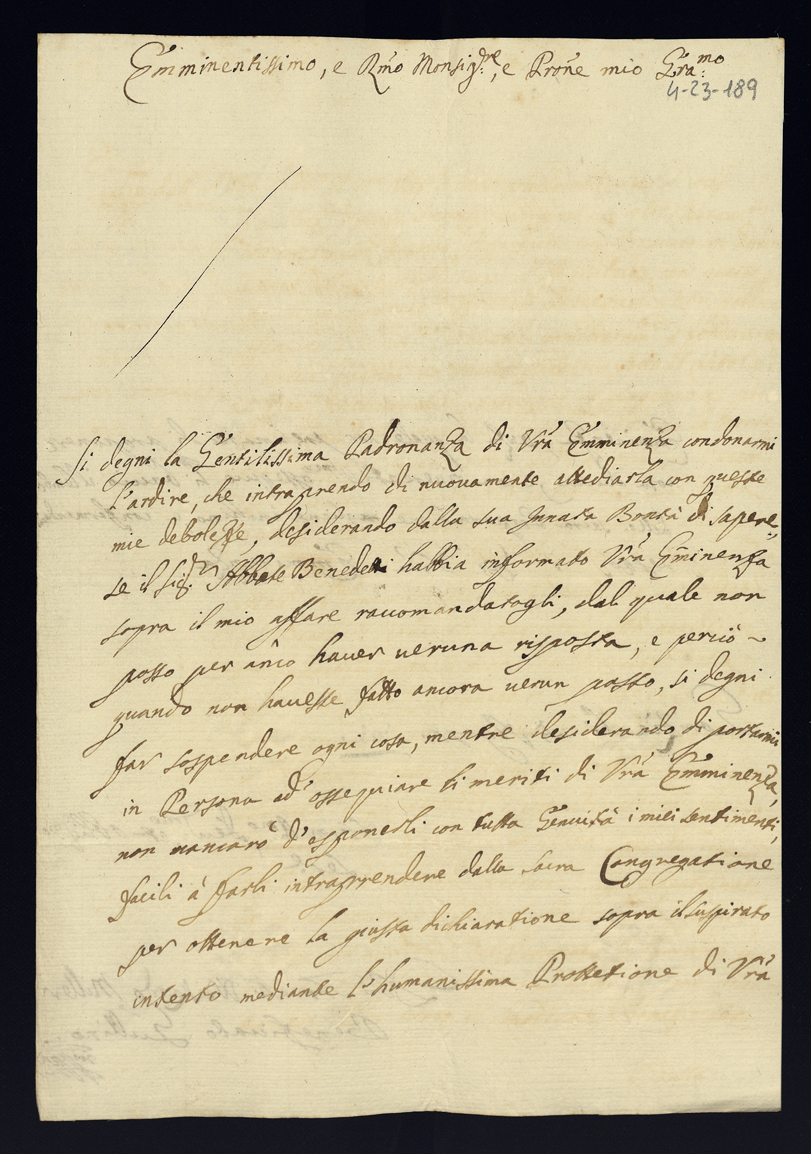 Emminentissimo, e Rmo Monsigre:, e Prone mio Gra:mo
4-23-189
Si degni la Gentilissima Padronanza di Vrã Emminenza condonarmi
l'ardire, che intraprendo di nuovamente attediarla con queste
mie debolezze, desiderando dalla sua Innata Bontà di sapere,
se il Sigr: Abbate Benedetti habbia informato Vrã Eminenza
sopra il mio affare raccomandatogli, dal quale non
posso per anco haver veruna risposta, e perciò ~
quando non havesse fatto ancora verun passo, si degni
far sospendere ogni cosa, mentre desiderando di portarmi
in Persona ad' ossequiare li meriti di Vrã Emminenza,
non mancarò d'esponerli con tutta Genuità i miei sentimenti,
facili à farli intrapprendere dalla sacra Congregatione
per ottenere la giusta dichiaratione sopra il suspirato
intento mediante l'humanissima Prottetione di Vrã